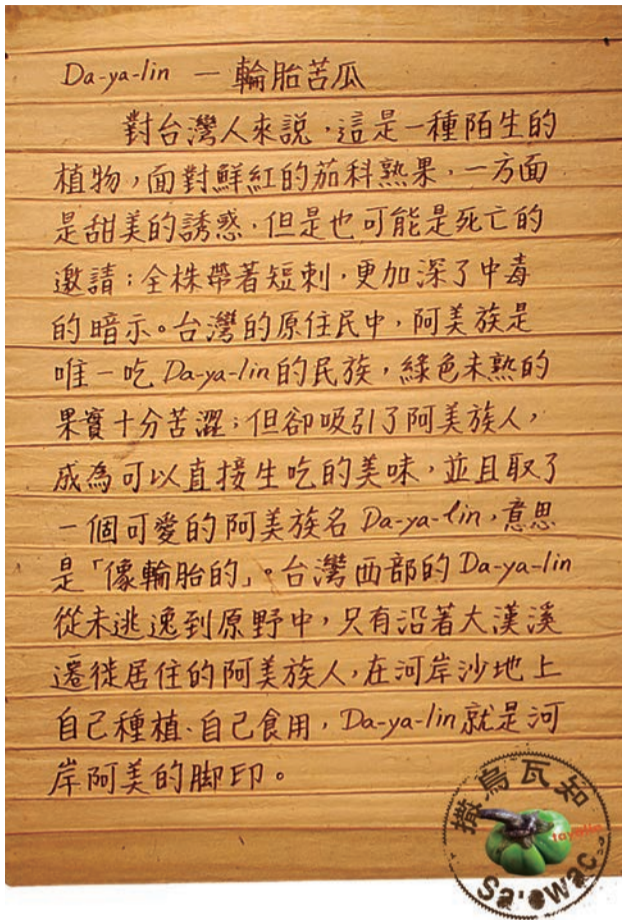 Da-ya-lin — 輪胎苦瓜
對台灣人來說,這是一種陌生的
植物,面對鮮紅的茄科熟果,一方面
是甜美的誘惑,但是也可能是死亡的
邀請;全株帶著短刺,更加深了中毒
的暗示。台灣的原住民中,阿美族是
唯一吃 Da-ya-lin 的民族,綠色未熟的
果實十分苦澀;但卻吸引了阿美族人,
成為可以直接生吃的美味,並且取了
一個可愛的阿美族名 Da-ya-lin,意思
是「像輪胎的」。台灣西部的 Da-ya-lin
從未逃逸到原野中,只有沿著大漢溪
遷徙居住的阿美族人,在河岸沙地上
自己種植、自己食用,Da-ya-lin 就是河
岸阿美的腳印。
撒烏瓦知
tayalin
Sa'owac